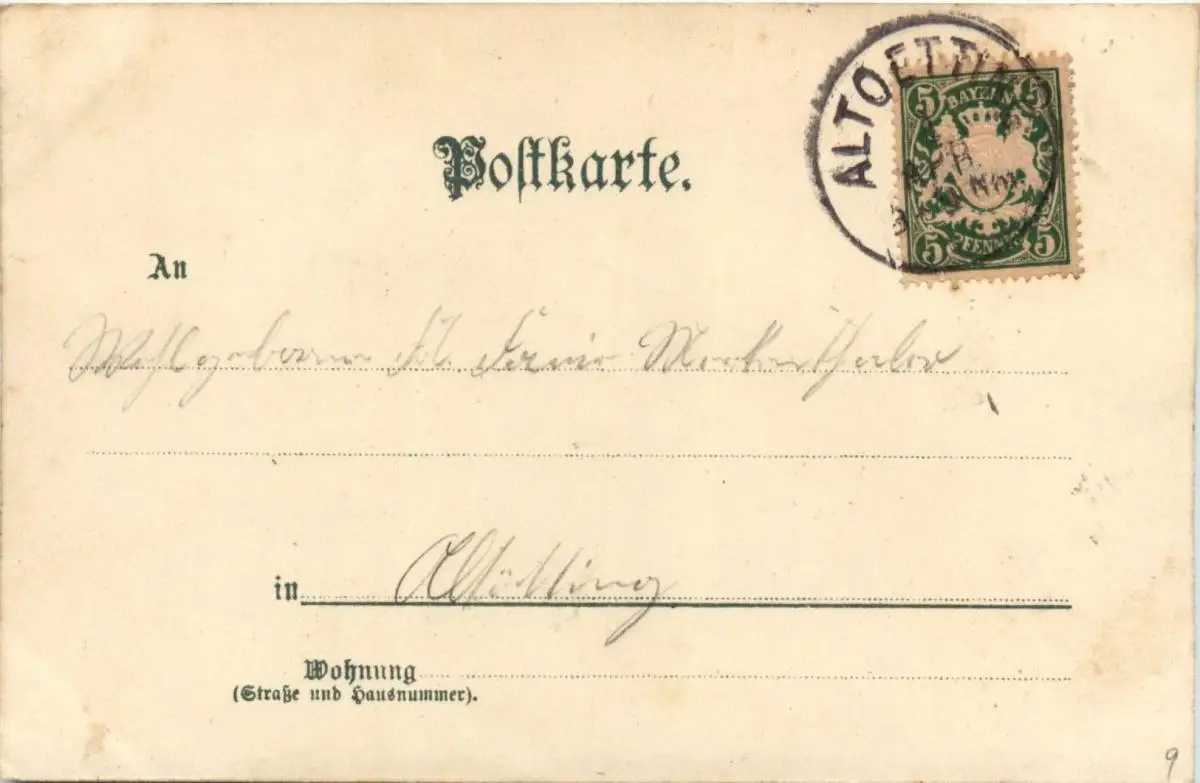 Postkarte.
ALTOETTING
5 BAYERN 5
APR.
5 PFENNIG 5
An
Wohlgeboren Frl.
in Altötting
Wohnung
(Straße und Hausnummer).
9